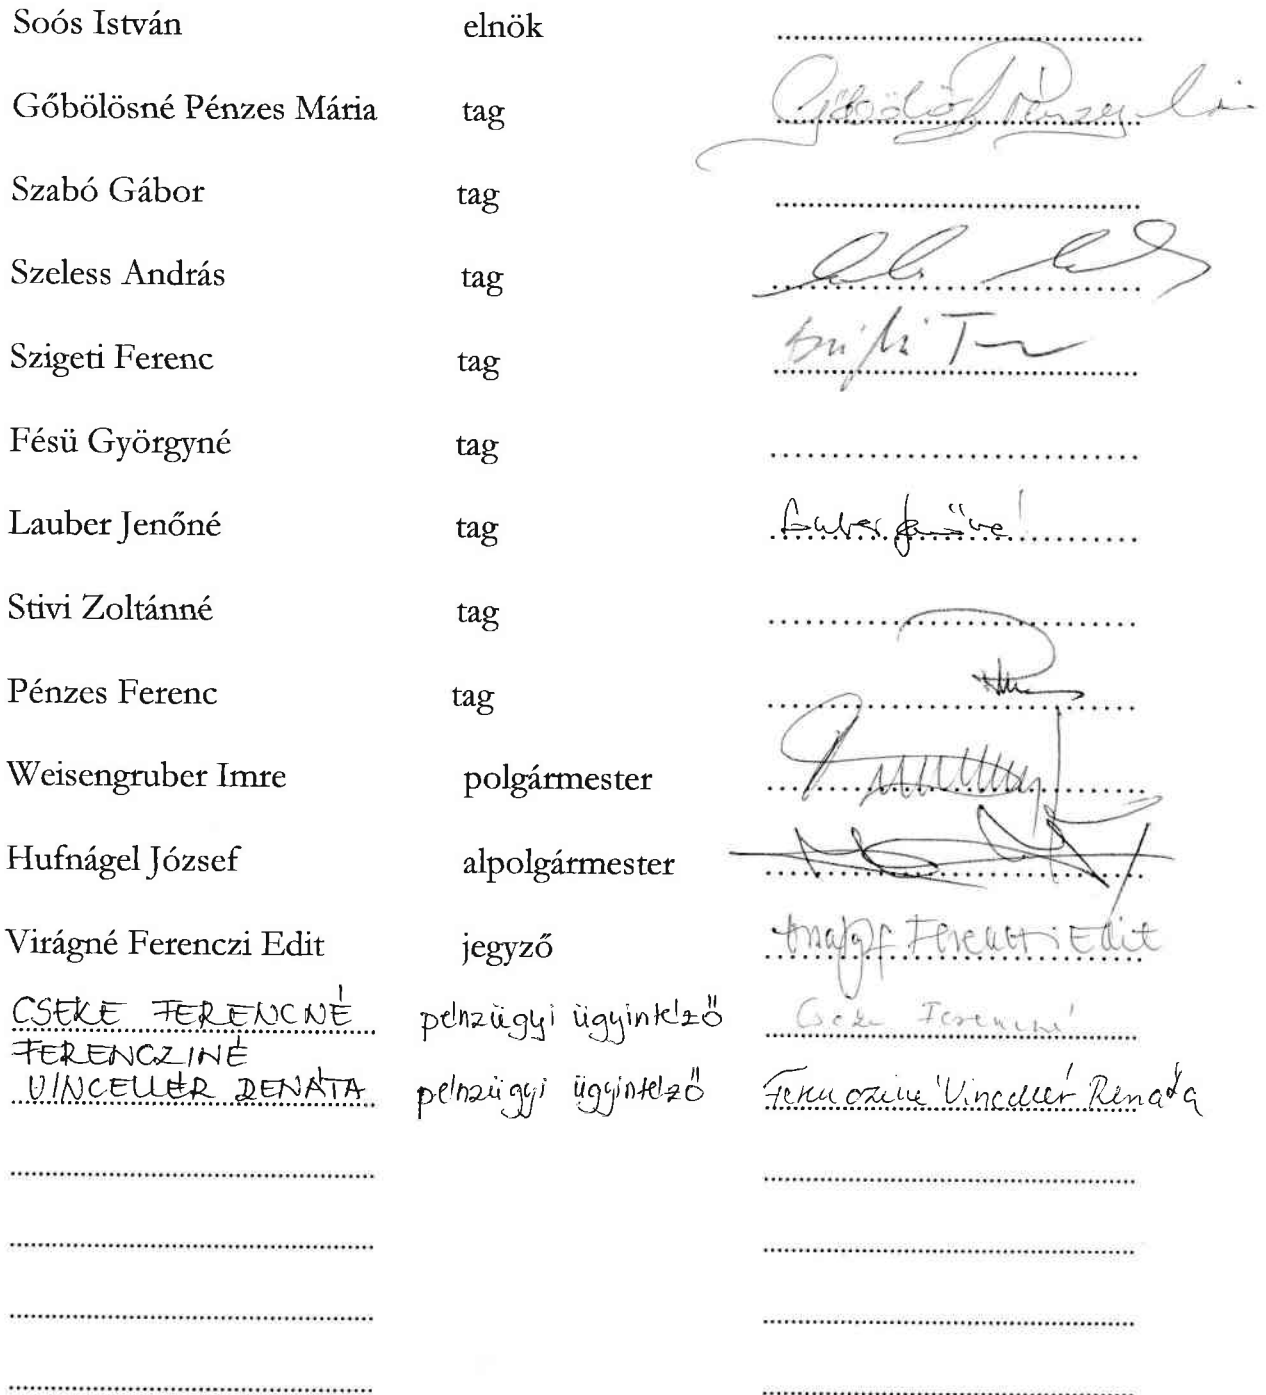 Soós István elnök
Gőbölösné Pénzes Mária tag
Szabó Gábor tag
Szeless András tag
Szigeti Ferenc tag
Fésü Györgyné tag
Lauber Jenőné tag Lauber Jenőné
Stivi Zoltánné tag
Pénzes Ferenc tag
Weisengruber Imre polgármester
Hufnágel József alpolgármester
Virágné Ferenczi Edit jegyző Ferenczi Edit
CSEKE FERENCNÉ pénzügyi ügyintéző Cseke Ferencné
FERENCZINÉ
VINCELLÉR RENÁTA pénzügyi ügyintéző Ferencziné Vincellér Renáta